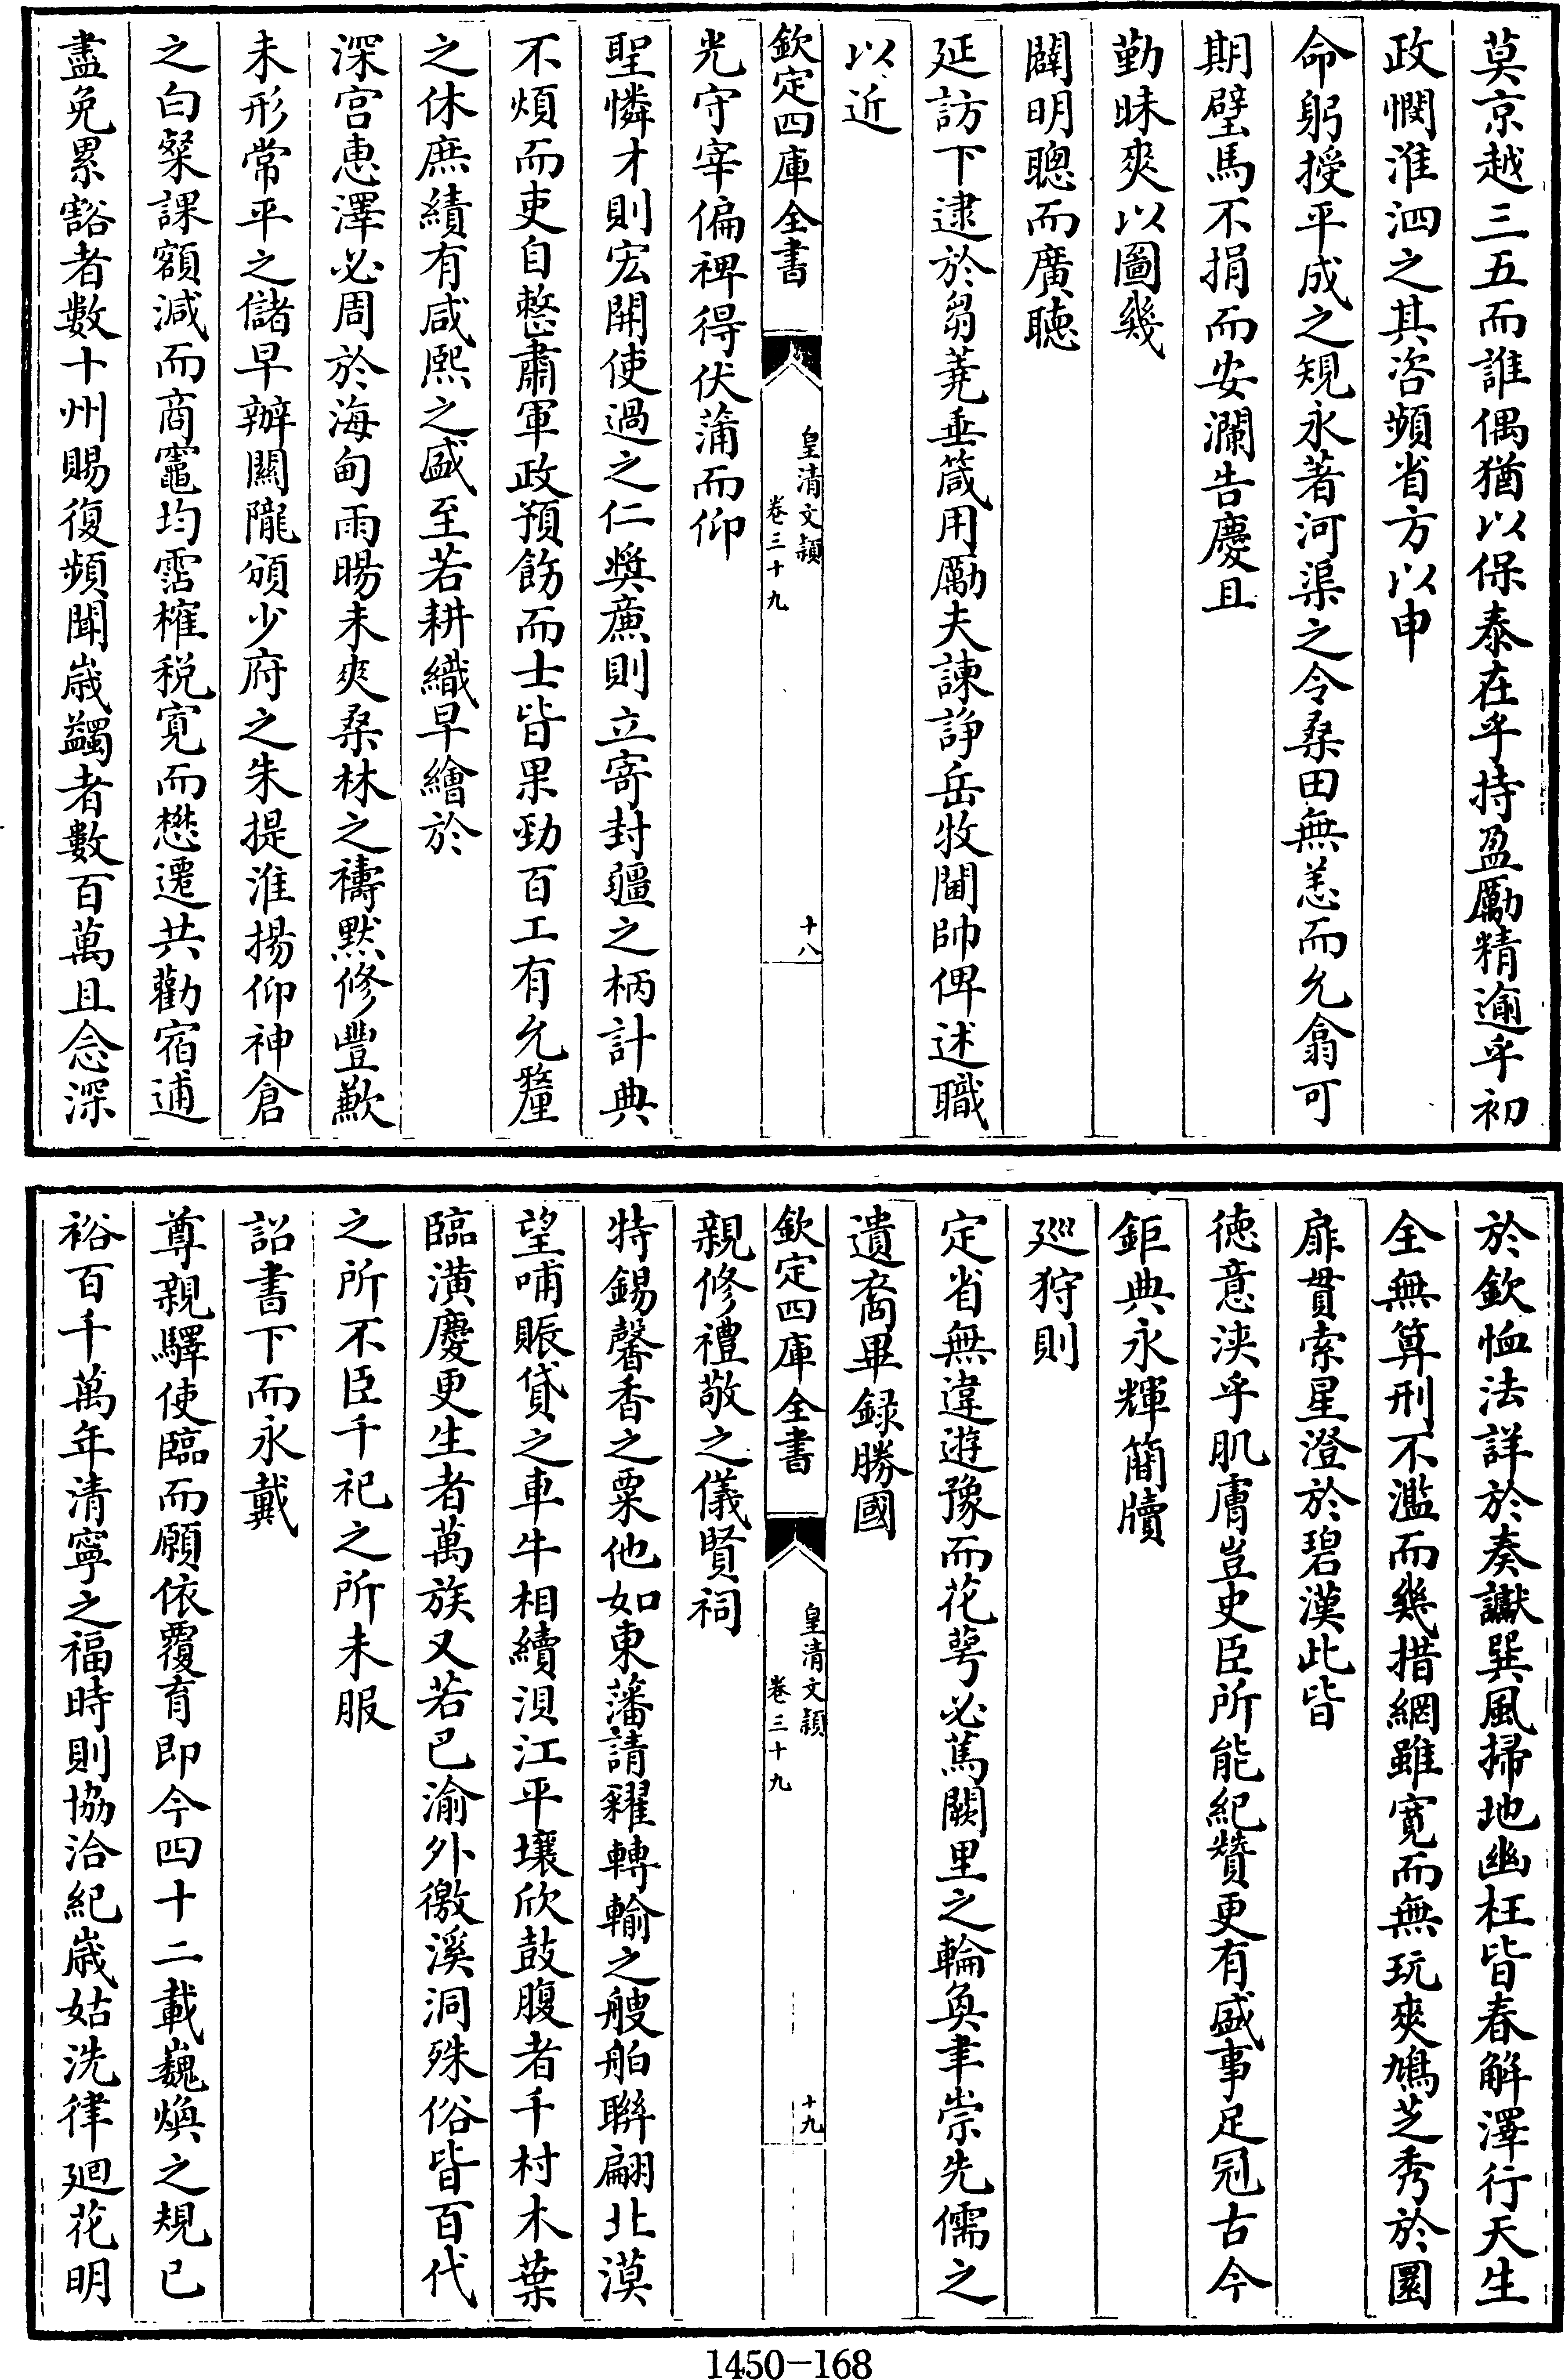 莫京越三五而誰偶猶以保泰在乎持盈勵精逾乎初
政憫淮泗之其咨頻省方以申
命躬授平成之規永著河渠之令桑田無恙而允翕可
期璧馬不捐而安瀾告慶且
勤昧爽以圖幾
闢明聰而廣聴
延訪下逮於芻蕘垂箴用勵夫諫諍岳牧閫帥俾述職
以近
欽定四庫全書
皇清文穎
卷三十九
十八
光守宰偏裨得伏蒲而仰
聖憐才則宏開使過之仁奬亷則立寄封疆之柄計典
不煩而吏自整肅軍政預飭而士皆果勁百工有允釐
之休庶績有咸熙之盛至若耕織早繪於
深宫惠澤必周於海甸雨暘未爽桑林之禱默修豐歉
未形常平之儲早辦關隴頒少府之朱提淮揚仰神倉
之白粲課額減而商竈均霑榷税寛而懋遷共勸宿逋
盡免累豁者數十州賜復頻聞歲蠲者數百萬且念深
於欽恤法詳於奏讞巽風掃地幽枉皆春解澤行天生
全無算刑不濫而幾措網雖寛而無玩爽鳩芝秀於圜
扉貫索星澄於碧漢此皆
徳意浹乎肌膚豈史臣所能紀贊更有盛事足冠古今
鉅典永輝簡牘
廵狩則
定省無違遊豫而花萼必篤闕里之輪奐聿崇先儒之
遺裔畢録勝國
欽定四庫全書
皇清文穎
卷三十九
十九
親修禮敬之儀賢祠
特錫馨香之粟他如東藩請糴轉輸之艘舶聯翩北漠
望哺賑貸之車牛相續浿江平壤欣鼓腹者千村木葉
臨潢慶更生者萬族又若巴渝外徼溪洞殊俗皆百代
之所不臣千祀之所未服
詔書下而永戴
尊親驛使臨而願依覆育即今四十二載巍煥之規已
裕百千萬年清寧之福時則協洽紀歲姑洗律廻花明
1450-168